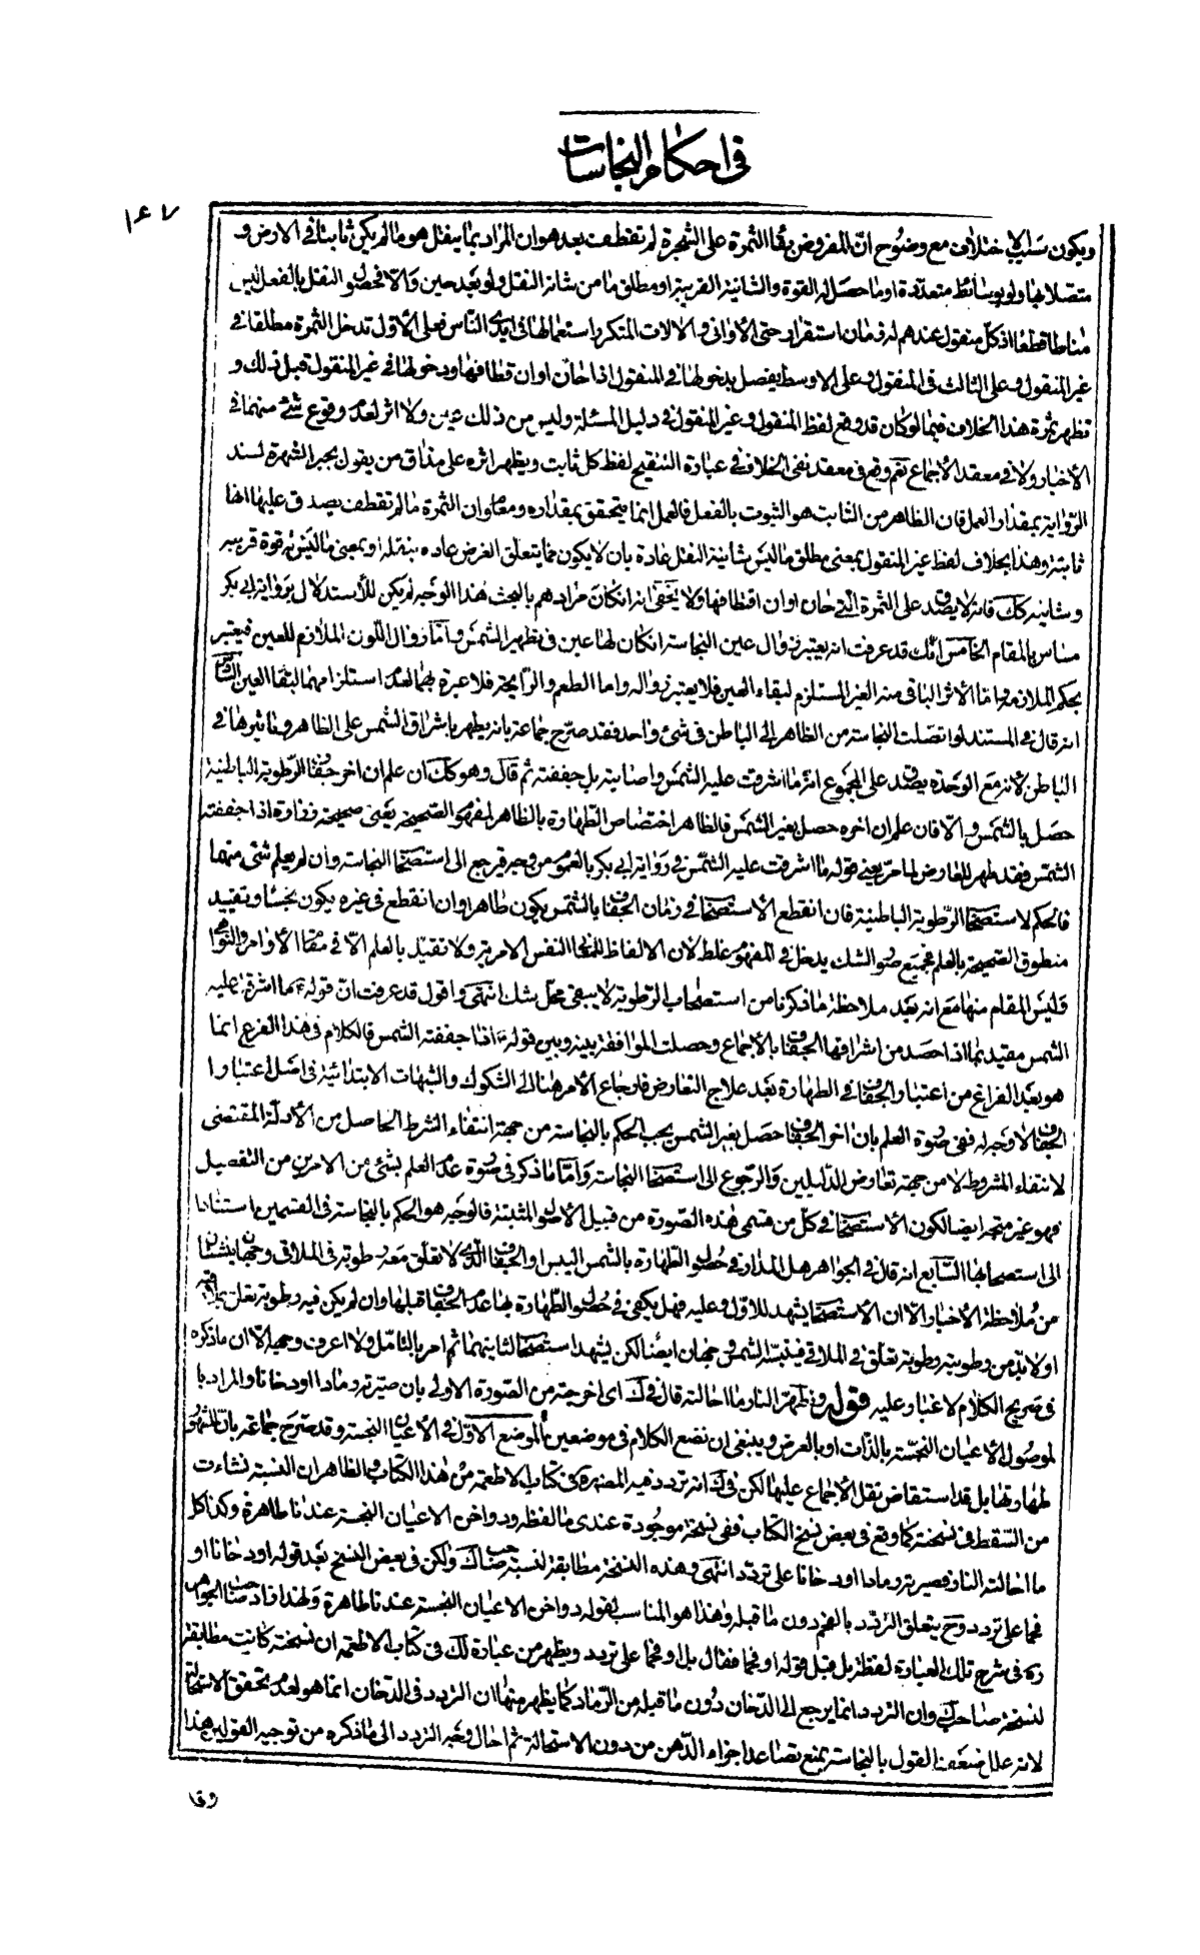 في احكام النجاسات
١٤٧
ويكون سلب الاختلاف مع وضوح انّ المفروض بقاء الثمرة على الشجرة لم تقطف بعد هو ان المراد بما ينقل هو ما لم يكن ثابتا في الارض و
متصلا بها ولو بوسائط متعددة او ما حصل له القوة والشانية القريبة او مطلق ما من شانه النقل ولو بعد حين والا فحصول النقل بالفعل ليس
مناطا قطعا اذ كل منقول عندهم له زمان استقرار حتى الأواني والالات المتكرر استعمالها في ايدى الناس فعلى الأول تدخل الثمرة مطلقا في
غير المنقول وعلى الثالث في المنقول وعلى الاوسط يفصل بدخولها في المنقول اذا حان اوان قطافها ودخولها في غير المنقول قبل ذلك و
تظهر ثمرة هذا الخلاف فيما لو كان قد وقع لفظ المنقول وغير المنقول في دليل المسئلة وليس من ذلك عين ولا اثر لعدم وقوع شئ منهما في
الأخبار ولا في معقد الإجماع نعم وقع في معقد نفى الخلاف في عبارة التنقيح لفظ كل ثابت ويظهر اثره على مذاق من يقول بجبر الشهرة لسند
الرواية بمقدار العمل فان الظاهر من الثابت هو الثبوت بالفعل فالعمل انما يتحقق بمقداره ومعلوم ان الثمرة ما لم تقطف يصدق عليها انها
ثابتة وهذا بخلاف لفظ غير المنقول بمعنى مطلق ما ليس بشانية النقل عادة بان لا يكون مما يتعلق الغرض عاده بنقله او بمعنى ما ليس له قوة قريبه
وشانيه كك فانه لا يصدق على الثمرة التي حان اوان اقتطافها ولا يخفى انه ان كان مرادهم بالبحث هذا الوجه لم يكن للأستدلال برواية ابي بكر
مساس بالمقام الخامس انّك قد عرفت انه يعتبر زوال عين النجاسة ان كان لها عين في تطهير الشمس وامّا زوال اللون الملازم للعين فيعتبر
بحكم الملازمة وامّا الأثر الباقى منه الغير المستلزم لبقاء العين فلا يعتبر زواله واما الطعم والرايحة فلا عبرة بهما لعدم استلزامهما لبقاء العين السّادس
انه قال في المستند لو اتصلت النجاسة من الظاهر الى الباطن في شئ واحد فقد صرّح جماعة بانه يطهر باشراق الشمس على الظاهر وتاثيرها في
الباطن لأنه مع الوحدة يصدق على المجموع انه ما اشرقت عليه الشمس واصابته بل جففته ثم قال وهو كك ان علم ان اخر جفاف الرطوبة الباطنية
حصل بالشمس والّا فان علم ان اخره حصل بغير الشمس فالظاهر اختصاص الطهارة بالظاهر لمفهوم الصحيحة يعنى صحيحة زرارة اذا جففته
الشمس فقد طهر المعارض لما مرّ يعنى قوله ما اشرقت عليه الشمس في رواية ابي بكر بالعموم من وجه فيرجع الى استصحاب النجاسة وان لم يعلم شئ منهما
فالحكم لاستصحاب الرطوبة الباطنية فان انقطع الأستصحاب في زمان الجفاف بالشمس يكون طاهرا وان انقطع في غيره يكون نجسا وتقييد
منطوق الصحيحة بالعلم فجميع صور الشك يدخل في المفهوم غلط لان الالفاظ للمعانى النفس الامرية ولا تقيّد بالعلم الّا في مقام الأوامر والنواهى
وليس المقام منها مع انه بعد ملاحظة ما ذكرنا من استصحاب الرطوبة لا يبقى محل شك انتهى واقول قد عرفت انّ قوله ما اشرقت عليه
الشمس مقيد بما اذا حصل من اشراقها الجفاف بالأجماع وحصلت الموافقة بينه وبين قوله اذا جففته الشمس فالكلام في هذا الفرع انما
هو بعد الفراغ من اعتبار الجفاف في الطهارة بعد علاج التعارض فارجاع الأمر هنا الى الشكوك والشبهات الابتدائية في اصل اعتبار
الجفاف لا وجه له ففى صورة العلم بان اخر الجفاف حصل بغير الشمس يجب الحكم بالنجاسة من جهة انتفاء الشرط الحاصل من الأدلة المقتضى
لانتفاء المشروط لا من جهة تعارض الدليلين والرجوع الى استصحاب النجاسة وامّا ما ذكر في صورة عدم العلم بشئ من الامرين من التفصيل
فهو غير متجه ايضا لكون الأستصحاب في كل من قسمى هذه الصورة من قبيل الاصول المثبتة فالوجه هو الحكم بالنجاسة في القسمين استنادا
الى استصحابها السّابع انه قال في الجواهر هل المدار في حصول الطهارة بالشمس اليبس او الجفاف الّذى لا تعلّق معه رطوبة في الملاقى وجهان ينشئان
من ملاحظة الأخبار الّا ان الأستصحاب يشهد للاوّل وعليه فهل يكفى في حصول الطهارة بها عدم الجفاف قبلها وان لم يكن فيه رطوبة تعلق بملاقيه
او لا بدّ من رطوبة تعلّق في الملاقى فيثبته الشمس وجهان ايضا لكن يشهد استصحاب النجاسة لثانيهما ثم امر بالتامّل ولا اعرف وجهه الّا ان ما ذكره
في صريح الكلام لا غبار عليه قوله وتطهر النار ما احالته قال في لك اى اخرجته من الصّورة الاولى بان صيّرته رمادا او دخانا والمراد با
لموصول الاعيان النجسة بالذّات او بالعرض وينبغى ان نضع الكلام في موضعين الموضع الأوّل في الأعيان النجسة وقد صرّح جماعة بان المشهور
طهارتها بل قد استفاض نقل الأجماع عليها لكن في لك انه تردد فيه المص ره في كتاب الاطعمة من هذا الكتاب والظاهر ان النسبة نشاءت
من السّقط في نسخته كما وقع في بعض نسخ الكتاب ففى نسخة موجودة عندى ما لفظه ودواخن الاعيان النجسة عندنا طاهرة وكذا كل
ما احالته النار فصيرته رمادا او دخانا على تردد انتهى وهذه النسخة مطابقة لنسبة صاحب لك ولكن في بعض النسخ بعد قوله او دخانا او
فحما على تردد وح يتعلق التردد بالفحم دون ما قبله وهذا هو المناسب لقوله دواخن الاعيان النجسة عندنا طاهرة ولهذا زاد صاحب الجواهر
ره في شرح تلك العبارة لفظة بل قبل قوله او فحما فقال بل او فحما على تردد ويظهر من عبارة لك في كتاب الاطعمة ان نسخته كانت مطابقة
لنسخة صاحب لك وان التردد انما يرجع الى الدخان دون ما قبله من الرّماد كما يظهر منها ان التردد في الدخان انما هو لعدم تحقق الاستحالة
لانه علل ضعف القول بالنجاسة بمنع تصاعد اجزاء الدهن من دون الاستحالة ثم احال وجه التردد الى ما ذكره من توجيه القولين هذا
وقا